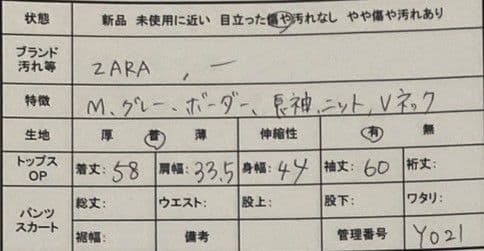 状態 新品 未使用に近い 目立った傷や汚れなし やや傷や汚れあり
ブランド 汚れ等 ZARA , ー
特徴 M、グレー、ボーダー、長神、ニット,Vネック
生地 厚 普 薄 伸縮性 有 無
トップス OP 着丈:58 肩幅:33.5 身幅:44 袖丈:60 裄丈:
パンツ スカート 総丈: ウエスト: 股上: 股下: ワタリ:
裾幅: 備考 管理番号 Y021